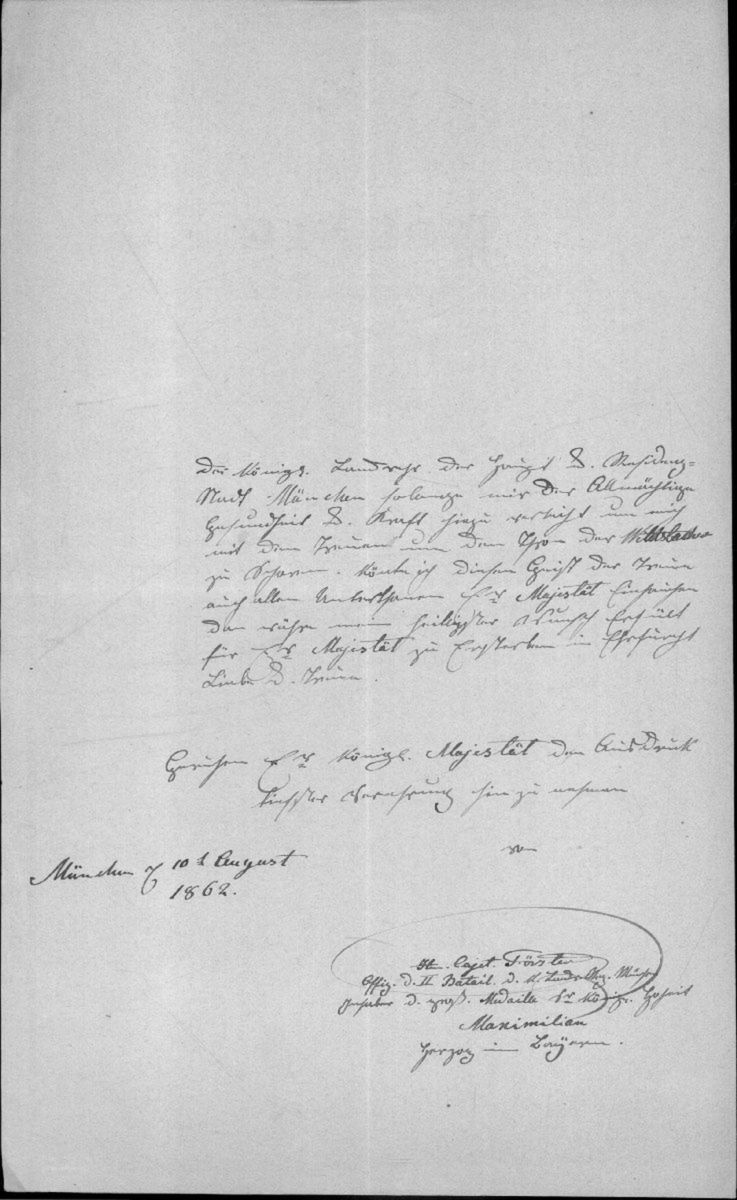 der Königl. Landwehr der Haupt &. Residenz=
Stadt München solange mir der Allmächtige
Gesundheit &. Kraft hiezu verleiht um mich
mit den Treuen um den Thron der Wittelsbacher
zu Scharen. Könte ich diesen Geist der Treue
auch allen Unterthanen Er Majestät Einhauchen
dan währe mein heiligster Wunsch Erfült
für Er Majestät zu Ersterben in Ehrfurcht
Liebe &. Treue.
Geruhen Er Königl. Majestät den Ausdruck
tiefster Verehrung hin zu nehmen
von
München 10t August
1862.
Cajet. Förster
Offiz. d. II Batail. d. K. Landw. Rg. München
Inhaber d. groß. Medaille Sr Königl. Hoheit
Maximilian
Herzog in Bayern.